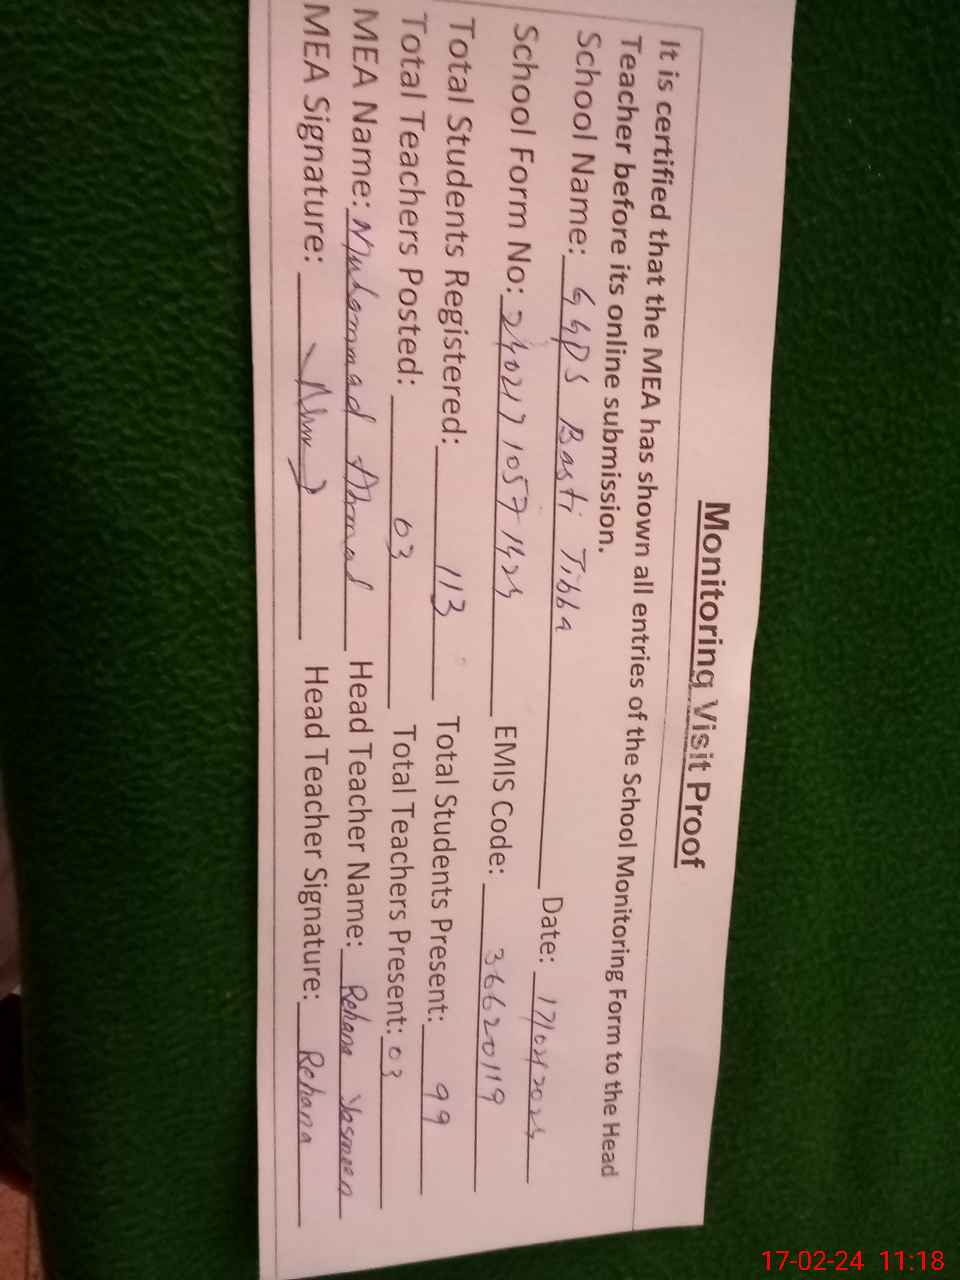 Monitoring Visit Proof
It is certified that the MEA has shown all entries of the School Monitoring Form to the Head
Teacher before its online submission.
School Name: GGPS Basti Tibba Date: 17/02/2024
School Form No: EMIS Code: 36620119
Total Students Registered: 113 Total Students Present: 99
Total Teachers Posted: 03 Total Teachers Present: 03
MEA Name: Muhammad Ahmad Head Teacher Name: Rehana Yasmeen
MEA Signature: Head Teacher Signature: Rehana
17-02-24 11:18